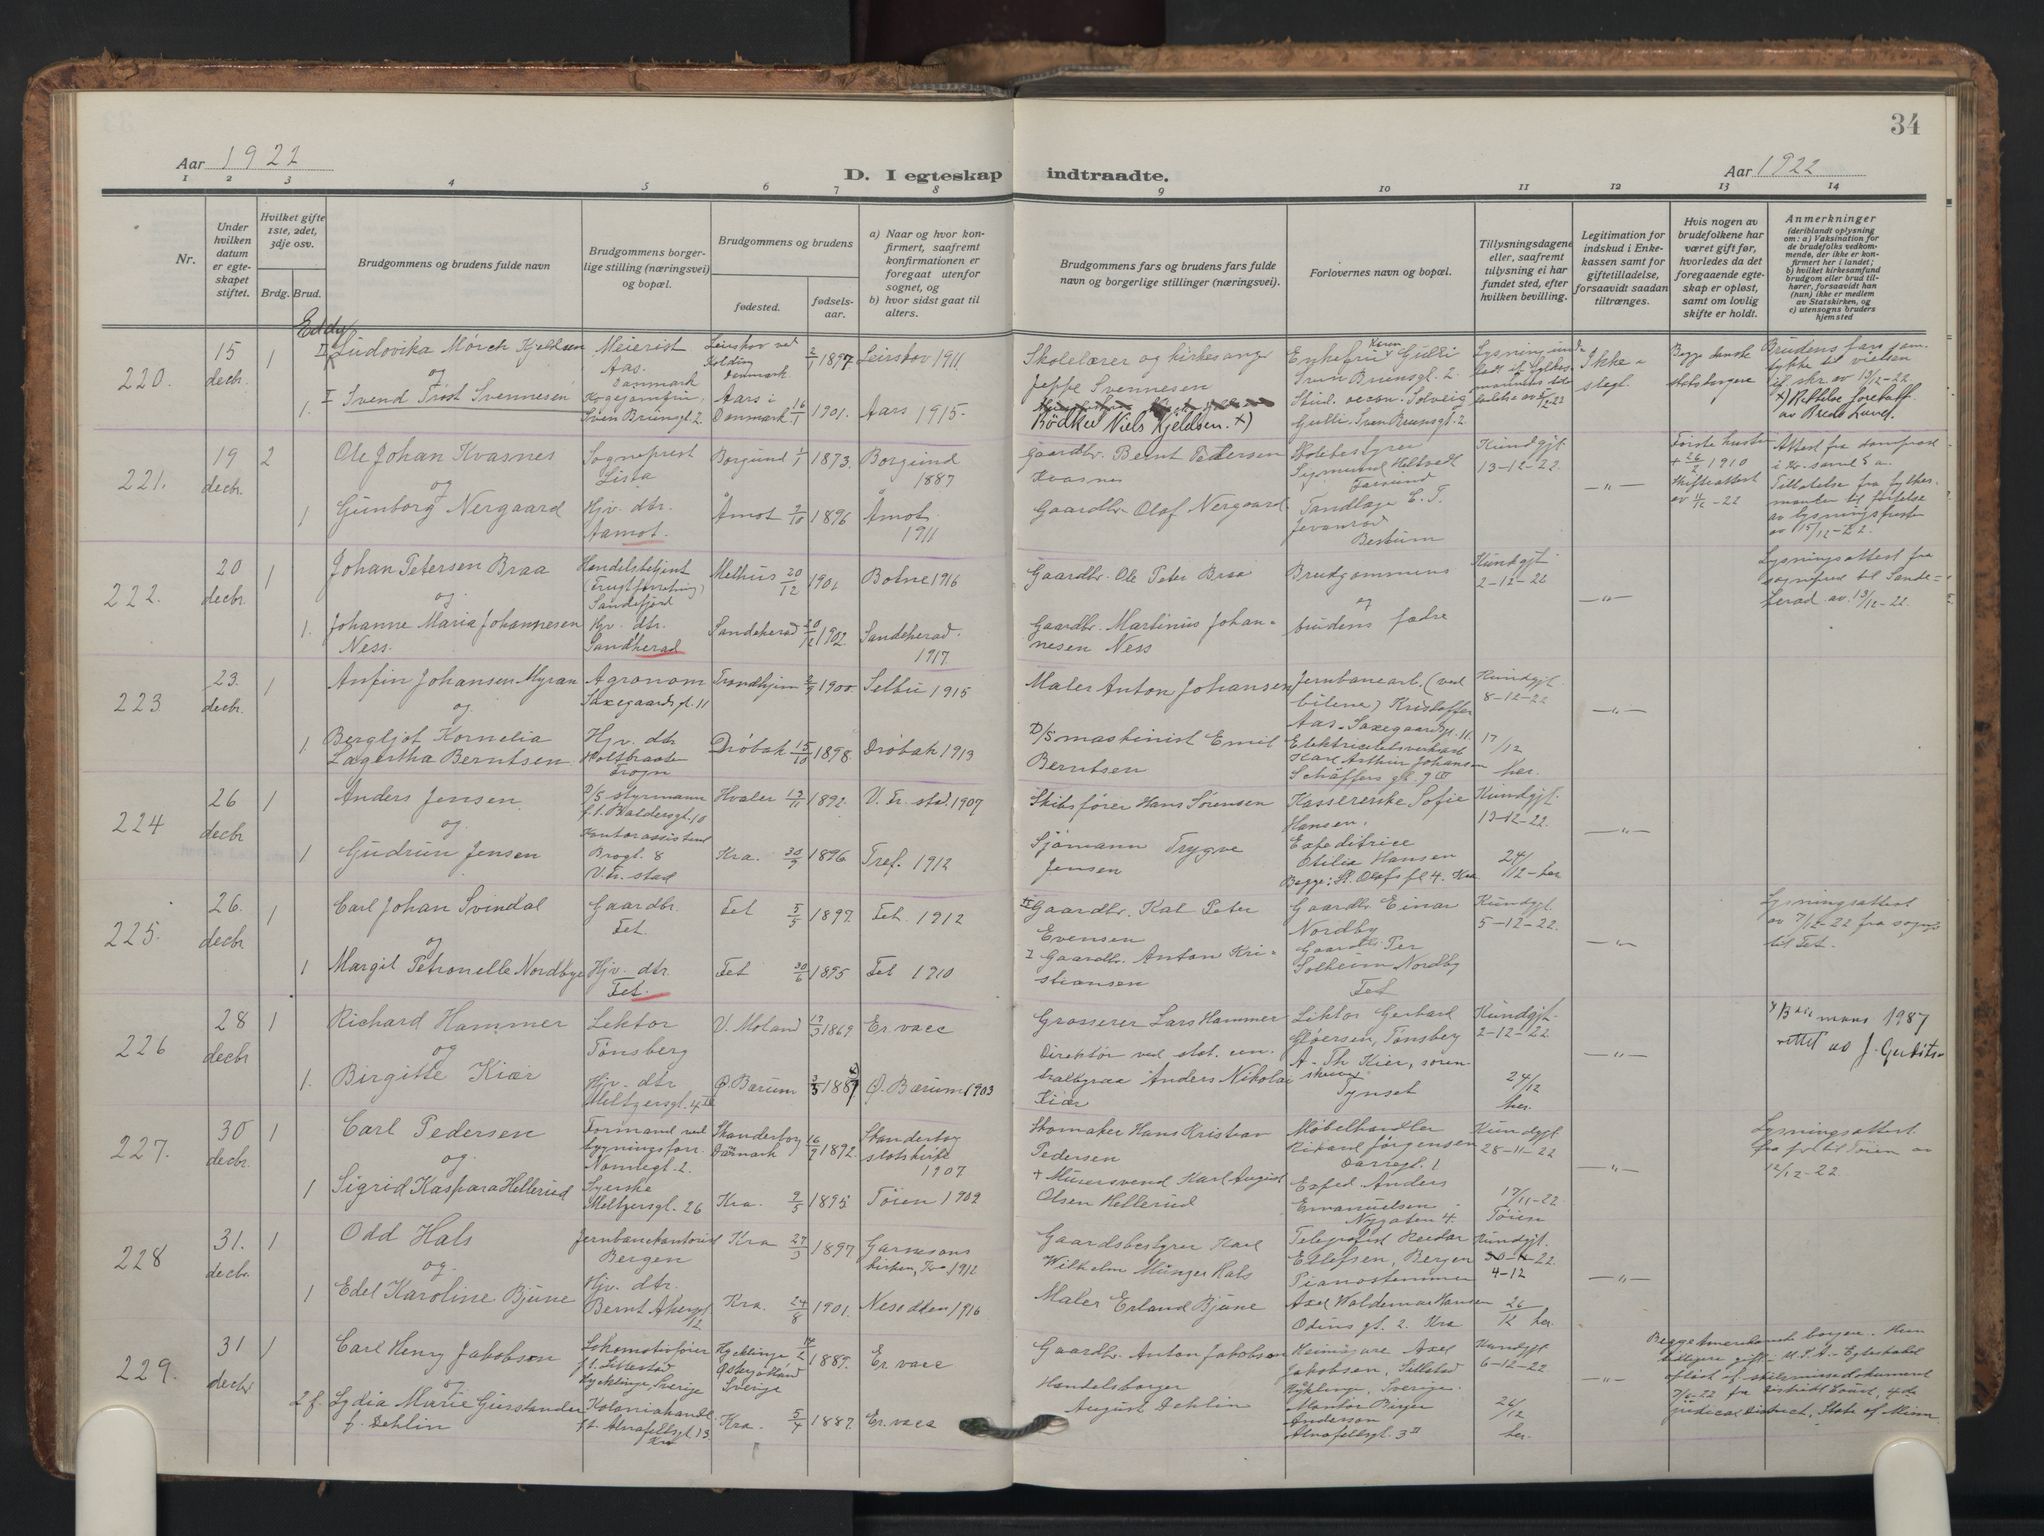 34
Aar 1922
D. I egteskap indtraadte.
Aar 1922
1 2 3 4 5 6 7 8 9 10 11 12 13 14
Nr.
Under hvilken datum er egteskapet stiftet.
Hvilket gifte 1ste, 2det, 3dje osv.
Brdg. Brud.
Brudgommens og brudens fulde navn
Brudgommens borgerlige stilling (næringsvei) og bopæl.
Brudgommens og brudens
fødested.
fødselsaar.
a) Naar og hvor konfirmert, saafremt konfirmationen er foregaat utenfor sognet, og
b) hvor sidst gaat til alters.
Brudgommens fars og brudens fars fulde navn og borgerlige stillinger (næringsvei).
Forlovernes navn og bopæl.
Tillysningsdagene eller, saafremt tillysning ei har fundet sted, efter hvilken bevilling.
Legitimation for indskud i Enkekassen samt for giftetilladelse, forsaavidt saadan tiltrænges.
Hvis nogen av brudefolkene har været gift før, hvorledes da det foregaaende egteskap er opløst, samt om lovlig skifte er holdt.
Anmerkninger (deriblandt oplysning om: a) Vaksination for de brudefolks vedkommende, der ikke er konfirmert her i landet; b) hvilket kirkesamfund brudgom eller brud tilhører, forsaavidt han (hun) ikke er medlem av Statskirken, og c) utensogns bruders hjemsted
220. 15 decbr. 1
Eddy
II Ludovika Mørch Kjeldsen
og
1. I Svend Trøst Svennesen
Meierist
Aas.
Danmark
Kogejomfru,
Sven Brunsgt. 2
Leirskov ved Kolding Danmark 1897 Leirskov 1911
Aars i Danmark 16/1 1901. Aars 1915.
Skolelærer og kirkesanger
Jeppe Svennesen
Bödker Niels Kjeldsen. x)
Enkefru Karen Gulli
Sven Brunsgt. 2.
Stud. oecon. Solveig
Gulli, Sven Brunsgt. 2.
Ikke
Begge danske
statsborgere
Brudens fars samtykke til vielsen
if. skr. av 13/12-22
x) Rettelse foretatt
221. 19 decbr. 2
Ole Johan Kvasnes
og
1 Gunborg Nergaard
Sogneprest
Lista
Hjv. dtr.
Aamot.
Borgund 1873. Borgund 1887
Åmot 9/10 1896 Åmot 1911
Gaardbr. Bernt Pedersen
Kvasnes
Gaardbr. Olaf Nergaard
Skolebestyrer
Sigmund Heltvedt
Farsund
Tandlæge E. T.
Jevanrad
Bestum
Kundgjt.
13-12-22.
—"—
Første hustru
+ 26/2 1910
Skifteattest
Tillatelse fra fylkesmanden
av 15/12-22.
222. 20 decbr. 1
Johan Petersen Braa
og
1. Johanne Maria Johannesen
Ness.
Handelsbetjent
(Frugtforretning)
Sandefjord
Hjv. dtr.
Sandherad
Melhus 20/12 1901 Botne 1916
Sandeherad 1902. Sandeherad. 1917.
Gaardbr. Ole Peter Braa
Gaardbr. Martinus Johannesen Ness
Brudgommens
og
brudens fædre
Kundgjt.
2-12-22
—"—
Lysningsattest fra
sognepr. til Sandeherad av 13/12-22.
223 23. decbr. 1
Anfin Johansen Myran
og
1 Bergljot Kornelia
Lagertha Berntsen
Agronom
Saxegaardsgt. 11
Hjv. dtr
Holtbraaten
Frogn
Trondhjem 2/9 1900 Selbu 1915
Drøbak 15/10 1898. Drøbak 1913
Maler Anton Johansen
D/S maskinist Emil
Berntsen
Jernbanearb. (ved
bilene) Kristoffer
Aas. Saxegaardsgt. 11.
Elektricitetsverksarb
Karl Arthur Johansen
Schäffers gt. 9 III
Kundgjt.
8-12-22
17/12
her.
—"—
224 26 decbr. 1
Anders Jensen
og
1 Gudrun Jensen
D/S styrmann
f. t. Baldersgt. 10
Kontorassistent
Brogt. 8
V. Fr. stad
Hvaler 13/11 1892. V. Fr. stad. 1907
Kra. 30/9 1896 Tref. 1912
Skibsfører Hans Sørensen
Sjømann Trygve
Jensen
Kassererske Sofie
Hansen.
Expeditrice
Otilia Hansen
Begge: St. Olafs pl 4. Kra
Kundgjt.
13-12-22.
24/12 - her
—"—
225. 26. decbr. 1
Carl Johan Svindal
og
1 Margit Petronelle Nordbye
Gaardbr.
Fet.
Hjv. dtr.
Fet.
Fet 5/5 1897. Fet. 1912
Fet 30/6 1895 Fet 1910
II Gaardbr. Kal Peter
Evensen
I Gaardbr. Anton Kristiansen
Gaardbr. Einar
Nordby
Gaardbr. Per
Solheim Nordby
Fet
Kundgjt.
5-12-22.
—"—
Lysningsattest
av 7/12-22 fra sognepr.
til Fet.
226 28 decbr. 1
Richard Hammer
og
1. Birgitte Kiær
Lektor
Tønsberg
Hjv. dtr
Meltzersgt. 4 III
V. Moland 17/3 1869 Er vace
Ø. Bærum 3/3 1887 Ø. Bærum 1903
Grosserer Lars Hammer
Direktør ved stat. centralbyraa Anders Nikolai
Kiær
Lektor Gerhard
Gløersen, Tønsberg
A. Th. Kiær, sorenskriver
Tynset
Kundgjt.
2-12-22.
24/12
her.
—"—
227. 30 decbr. 1
Carl Pedersen
og.
1 Sigrid Kaspara Hellerud
Formand ved
bygningsforr.
Nonnegt. 2.
Syerske
Meltzersgt. 26
Skanderborg Danmark 16/9 1892. Skanderborg slotskirke 1907
Kra. 2/5 1895 Tøien 1909
Skomaker Hans Kristian
Pedersen
+ Murersvend Karl August
Olsen Hellerud
Møbelhandler
Rikard Jørgensen
Darregt. 1
Exped. Anders
Emanuelsen
Nygaten 4.
Kundgjt.
28-11-22
17/11-22.
Tøien
—"—
Lysningsattest
fra spr. til Tøien av
12/12-22
228 31. decbr. 1
Odd Hals
og.
1 Edel Karoline Bjune
Jernbanekontorist
Bergen
Hjv. dtr.
Bernt Ankersgt. 12.
Kra 27/3 1897. Garnisonskirken, Kra. 1912
Kra. 24/8 1901. Nesodden 1916
Gaardsbestyrer Karl
Wilhelm Münzer Hals
Maler Erland Bjune
Telegrafist Reidar
Ellefsen, Bergen
Pianostemmer
Axel Waldemar Hansen
Odins gt. 2. Kra
Kundgjt.
4-12
26/12 her.
—"—
229. 31 decbr 1
Carl Henry Jakobson
og
2 f. Lydia Marie Gurslander
f. Dehlin
Lokomotivfører
f. t. Sillestad
Hycklinge, Sverige
Kolonialhandl.
f. t. Alnafeltsgt. 3
Kra
Hycklinge Østergøtland Sverige 14/2 1889. Er vace
Kra. 5/4 1887. Er vace
Gaardbr. Anton Jakobson
Handelsborger
August Dehlin
Axel
Jakobsen, Sillstad
Hyklinge, Sverige.
Montør Birger
Anderson
Alnafeltsgt. 3 II
Kundgjt
6-12-22.
26/12
her.
—"—
Begge Amerikanske borgere. Hun
tidligere gift i U.S.A. Egteskabet
opløst if. skilsmissedokument
fra District Court, 4de
judical District, State of Minn.